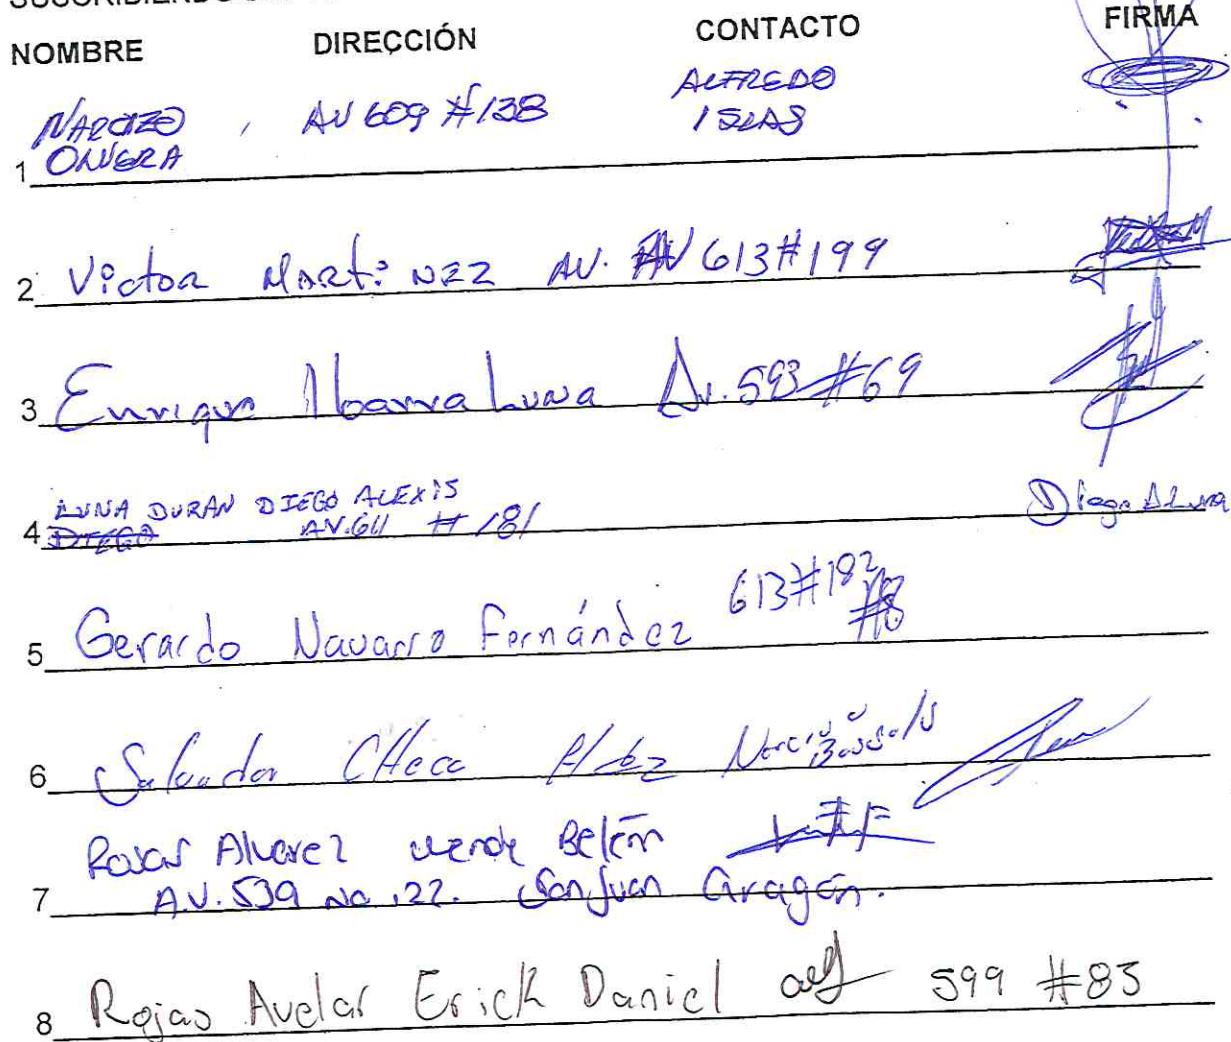 NOMBRE DIRECCIÓN CONTACTO FIRMA
NARCIZO , AV 609 #138 ALFREDO
1 OLVERA ISLAS
2 Victor Martinez AV. AV 613 #199
3 Enrique Ibarra Luna Av. 593 #69
LUNA DURAN DIEGO ALEXIS
4 DIEGO AV. 611 # 181 Diego A Luna
5 Gerardo Navarro Fernández 613 #182 #8
6 Salvador Checa Narciso Bassols
Alvarez Belém
7 A.V. 539 No. 22. San Juan Aragón.
8 Rojas Avelar Erick Daniel 599 #83